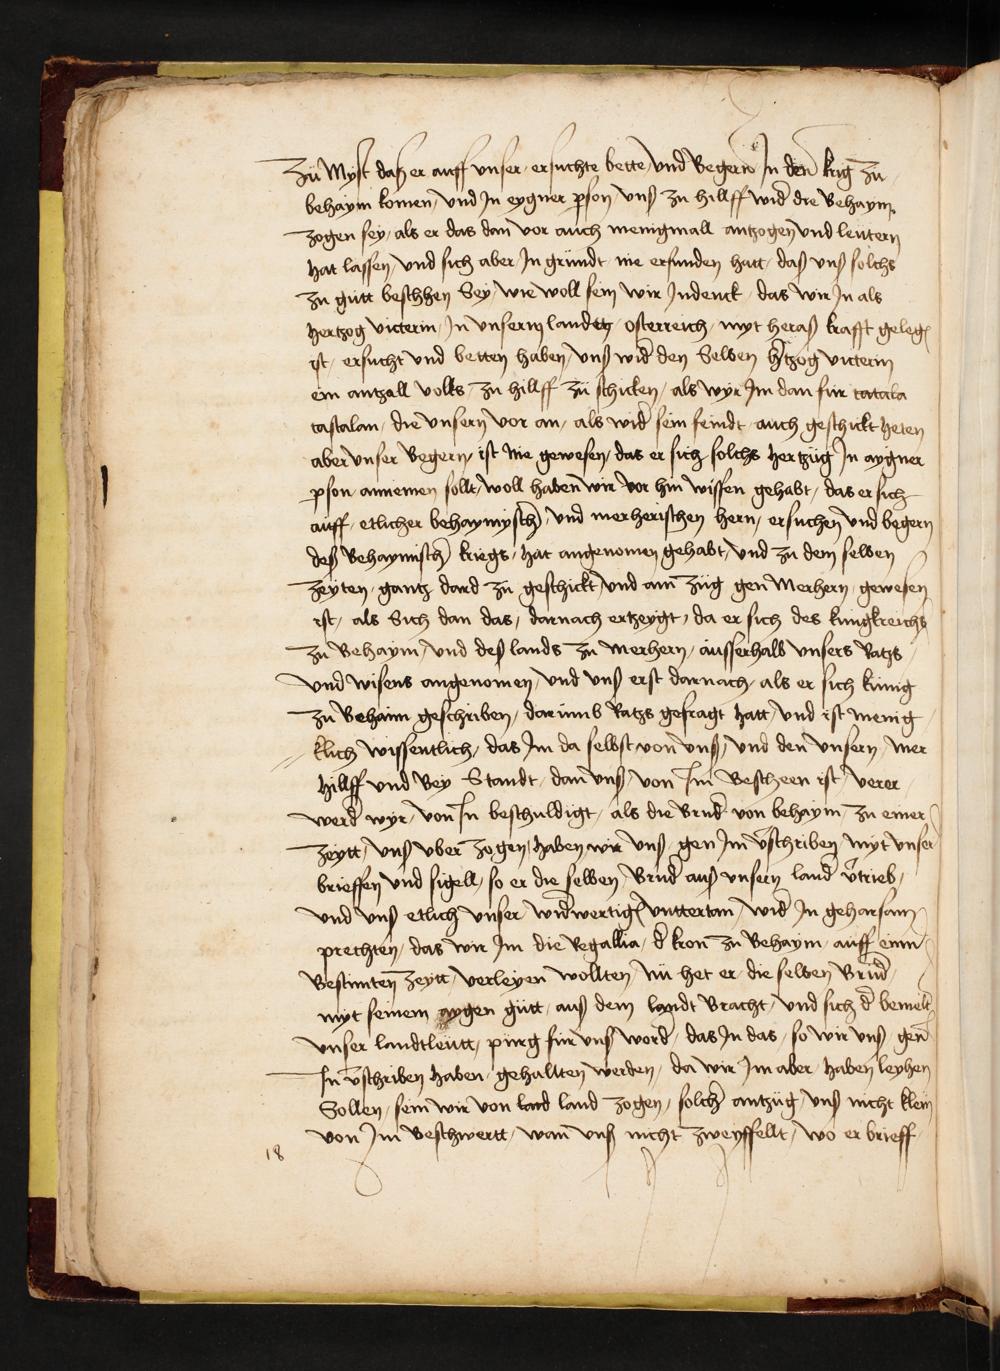 Zu Myst das er auff unser ersuchte bette und Begern In den krig zu
behaym komen und In eygner pson uns zu hillff wid die Behaym
zogen sey als er das dan vor auch menigmall antzogen und leutern
hat lassen und sich aber In grundt nie erfunden hatt das uns solchs
zu gutt beschhen Sey wie woll sein wir Indenck das wir In als
hertzog victerin In unserm landt osterreich myt heras krafft geleg
ist ersucht und betten haben uns wid den Selben htzog victerin
ein antzall volks zu hillff zu schicken als wyr Im dan fur catala
castalan die unsern vor an als wid sein feindt auch geschickt heten
aber unser Begern ist Nie gewesen das er sich solchs hertzug In aygner
pson annemen sollt woll haben wir vor hin wissen gehabt das er sich
auff etlicher behaymysch und merherischen hern ersuchen und begern
des Behaymisch kriegs hat angenomen gehabt und zu dem selben
zeyten gantz dard zu geschickt und am zug gen Merhern gewesen
ist als Sich dan das darnach ertzeygt da er sich des kungkreichs
zu Behaym und des lands zu Merhern ausserhalb unsers Ratzs
und wisens angenomen und uns erst darnach als er sich kunig
zu Behaim geschriben darumb Ratzs gefragt hatt und ist menig
klich wissentlich das Im da selbst von uns und den unsern mer
hillff und Bey Standt dan uns von Im Beschzeen ist verer
werd wyr von In beschuldigt als die Brud von behaym zu einer
zeytt uns uber zogen haben wir uns gen Im vschriben myt unser
brieffen und sigell so er die selben Brud aus unsern land vtrieb
und uns etlich unser widwertig unttertan wid In geharsam
prechten das wir Im die Regallia d kron zu Behaym auff einn
Bestimten zeytt verleyen wollten nu het er die selben Brud
myt seinem aygen gutt aus dem landt Bracht und sich d bemelt
unser landtleutt purg fur uns word das In das so wir uns gen
In vschriben haben gehallten werden da wir Im aber haben leyhen
Sollen sein wir von land land zogen solch antzug uns nicht klein
von Im Beschwertt wan uns nicht zweyffellt wo er brieff
18